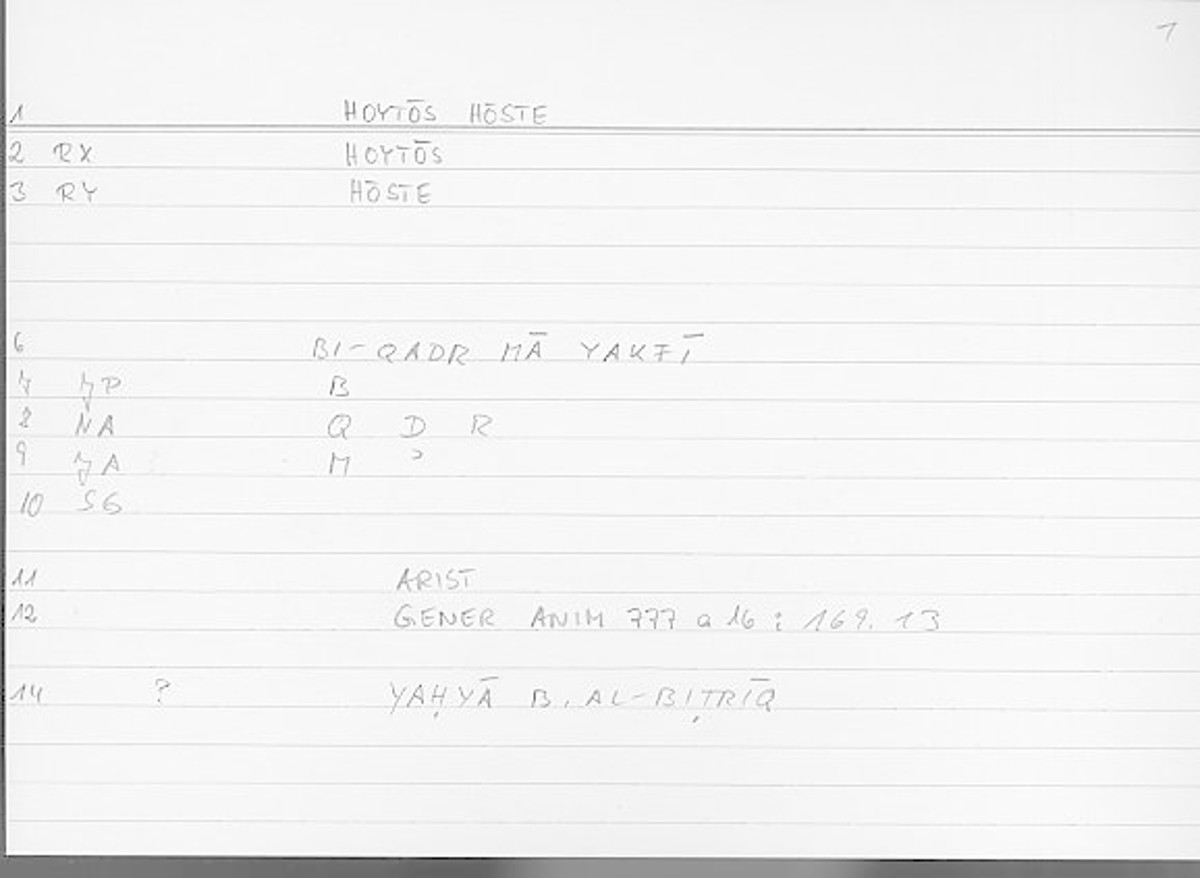 1
1 HOYTŌS HŌSTE
2 RX HOYTŌS
3 RY HŌSTE
6 BI-QADR MĀ YAKFĪ
7 JP B
8 NA Q D R
9 JA M ʾ
10 SG
11 ARIST
12 GENER ANIM 777 a 16 : 169. 13
14 ? YAḤYĀ B. AL-BIṬRĪQ